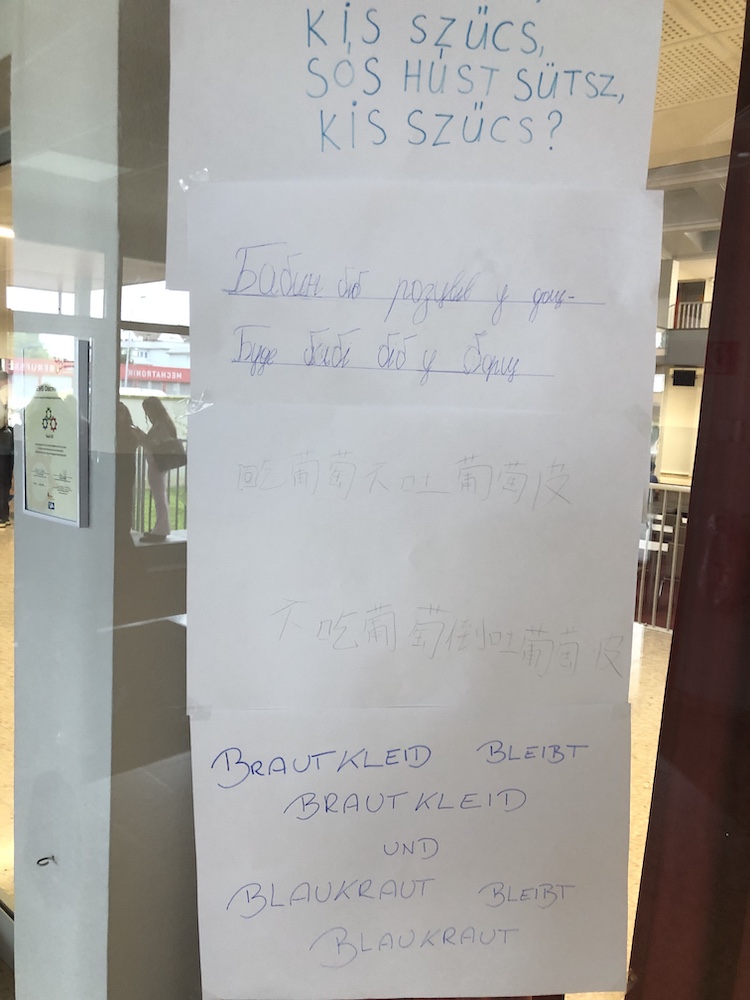 KIS SZŰCS,
SÓS HÚST SÜTSZ,
KIS SZŰCS?
Бабин біб розцвів у дощ-
Буде бабі біб у борщ
吃葡萄不吐葡萄皮
不吃葡萄倒吐葡萄皮
BRAUTKLEID BLEIBT
BRAUTKLEID
UND
BLAUKRAUT BLEIBT
BLAUKRAUT
MECHATRONIK